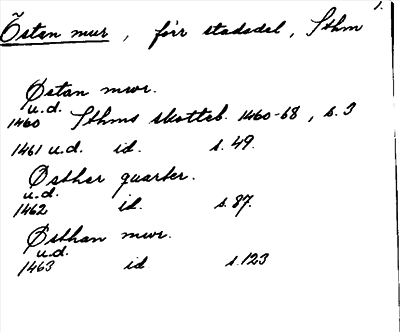 1.
Östan mur, förr stadsdel, Sthm
Østan mwr.
u.d.
1460 Sthms skotteb. 1460-68, s. 3
1461 u.d. id. s. 49.
Østhar quarter.
u.d.
1462 id. s. 87.
Østhan mwr.
u.d.
1463 id s. 123